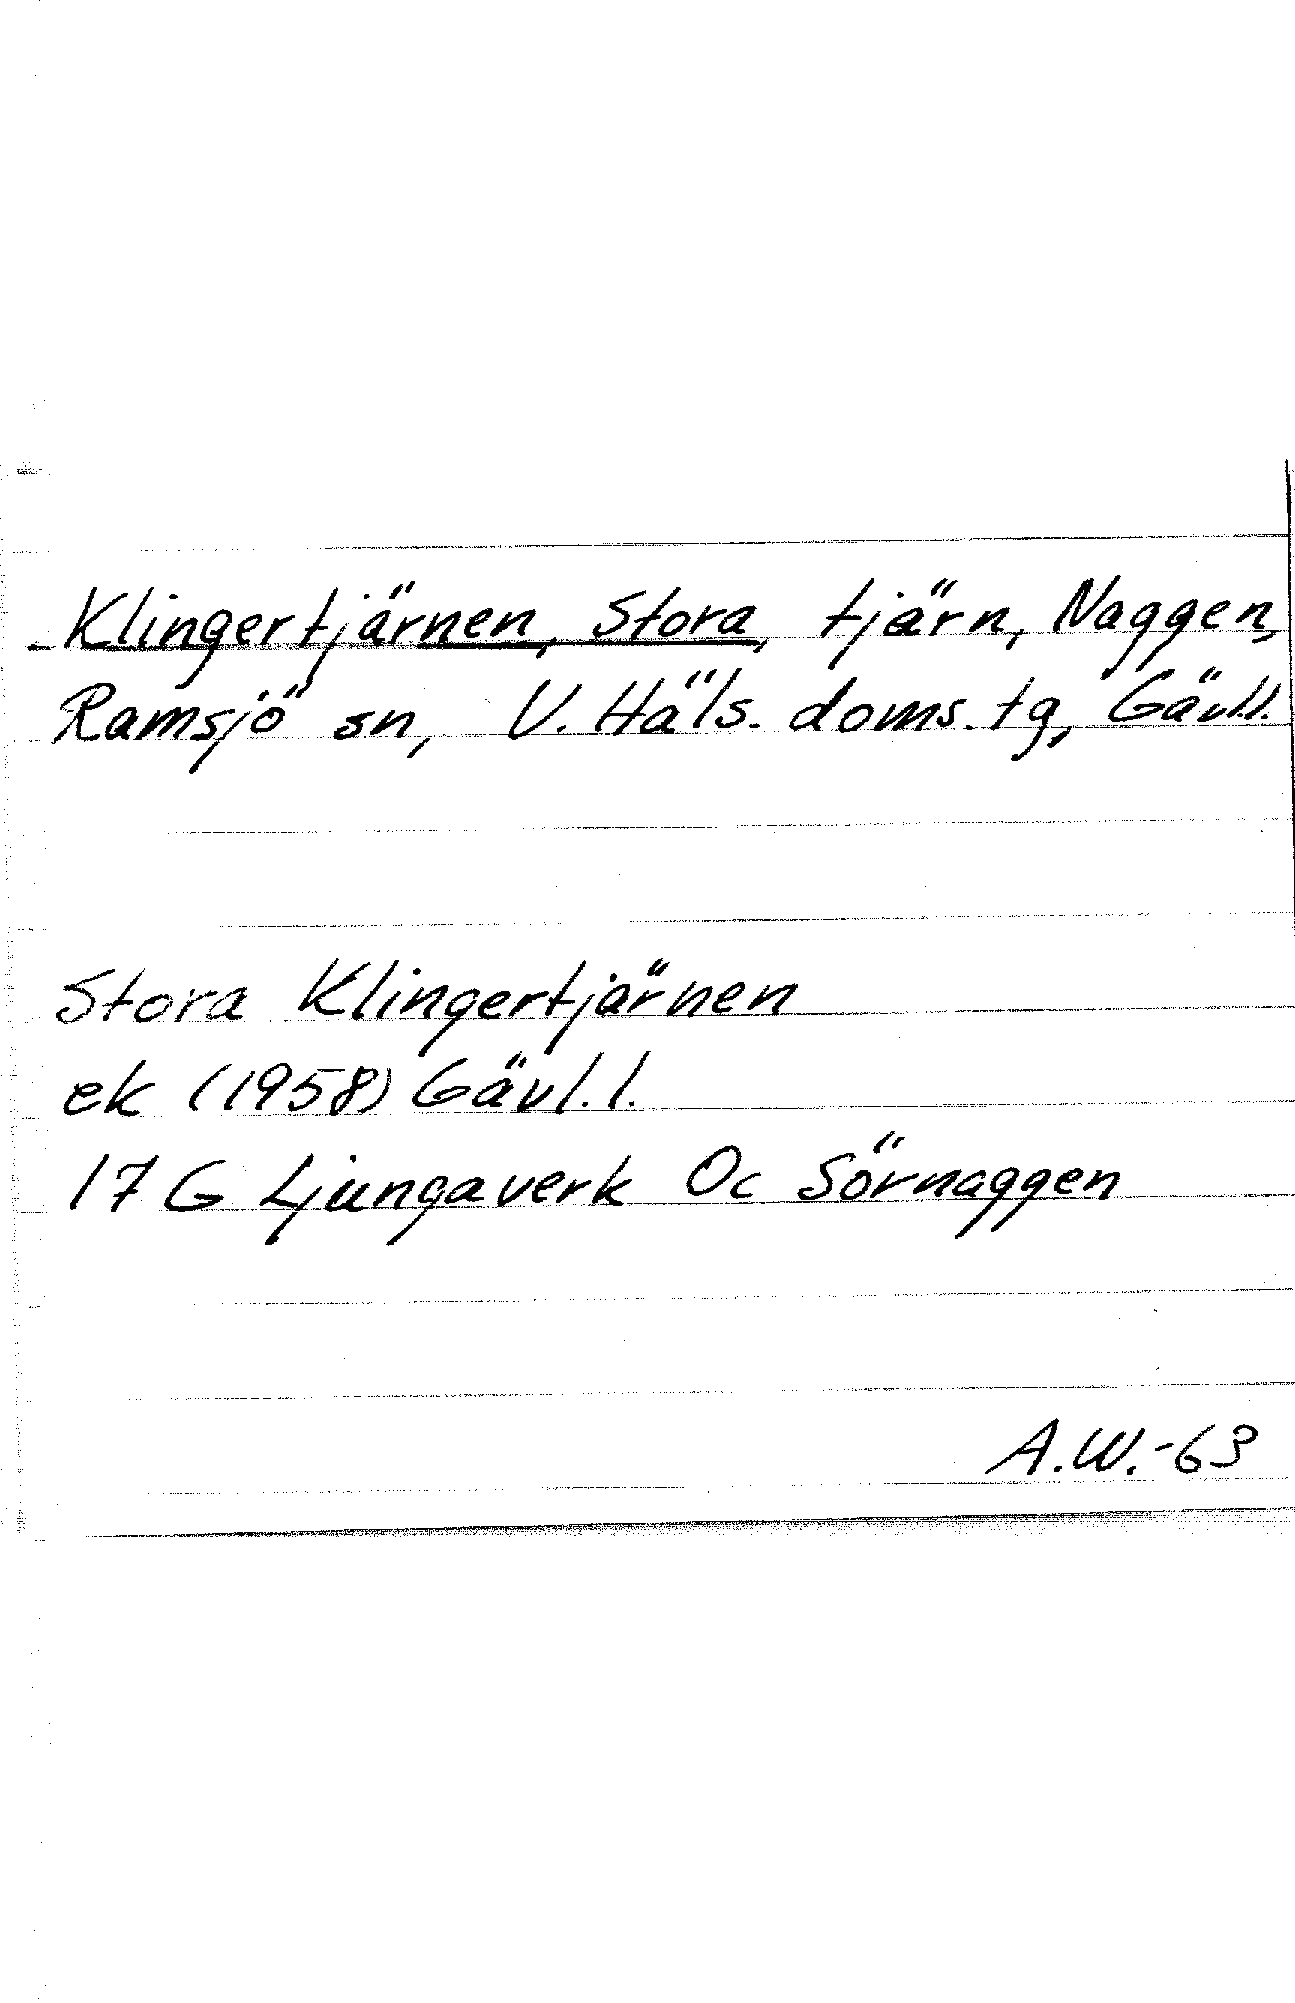 Klingertjärnen, Stora, tjärn, Naggen,
Ramsjö sn, V. Häls. doms. tg, Gävl.l.
Stora Klingertjärnen
ek (1958) Gävl.l.
17 G Ljungaverk Oc Sörnaggen
A.W.-63